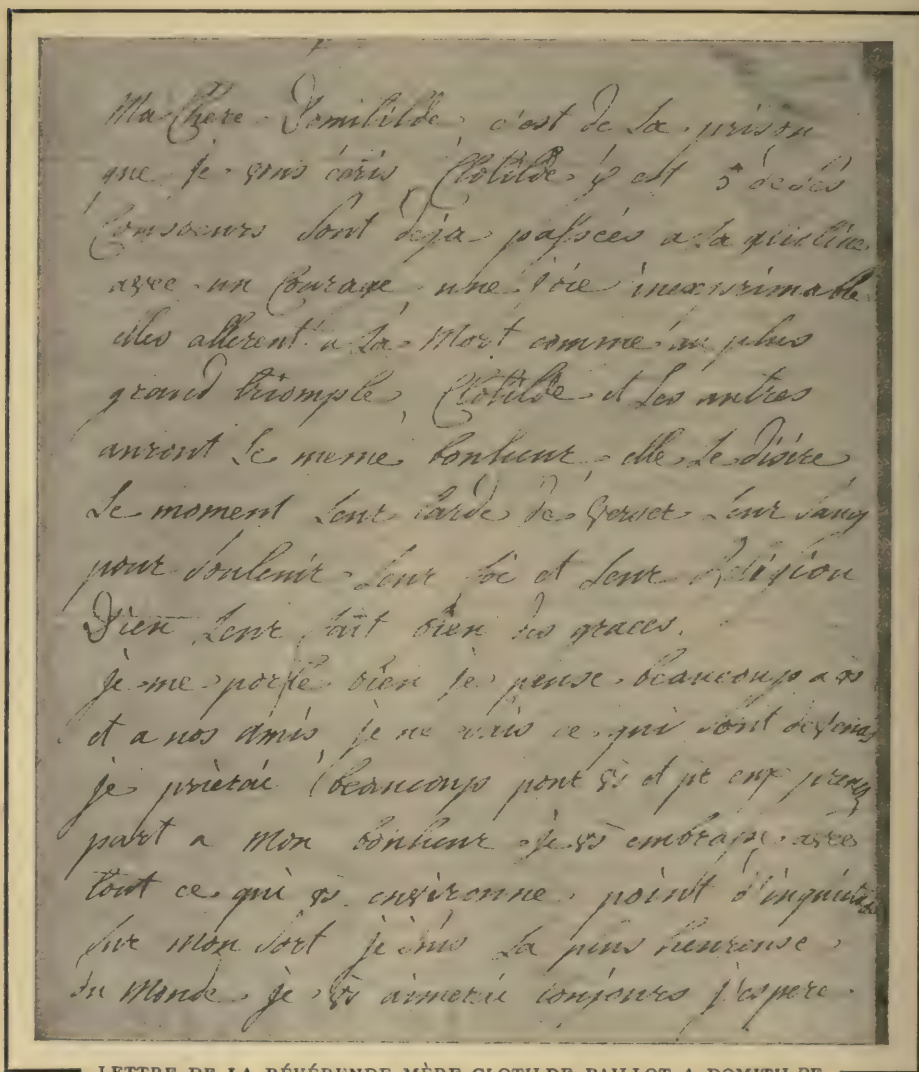 Ma Chere Domitilde, c'est de la prison
que je vous écris, Clotilde y est 5 de ses
Consoeurs sont déja passées a la guiotine
avec un Courage une Joie inexprimable
elles allerent a la Mort comme au plus
grand triomple, Clotilde et les autres
auront le meme bonheur, elle le désire
Le moment leur tarde de verser leur sang
pour soutenir leur foi et leur Religion
Dieu leur fait bien des graces.
je me porte bien je pense beaucoup a vs
et a nos amis je ne sais ce qui sont devenus
je prierai beaucoup pour vs et pr eux prenez
part a mon bonheur je vs embrasse avec
tout ce qui vs environne, point d'inquietude
sur mon sort je suis la plus heureuse
du Monde. je vs aimerai toujours j'espere.
LETTRE DE LA RÉVÉRENDE MÈRE CLOTILDE PAILLOT A DOMITILDE